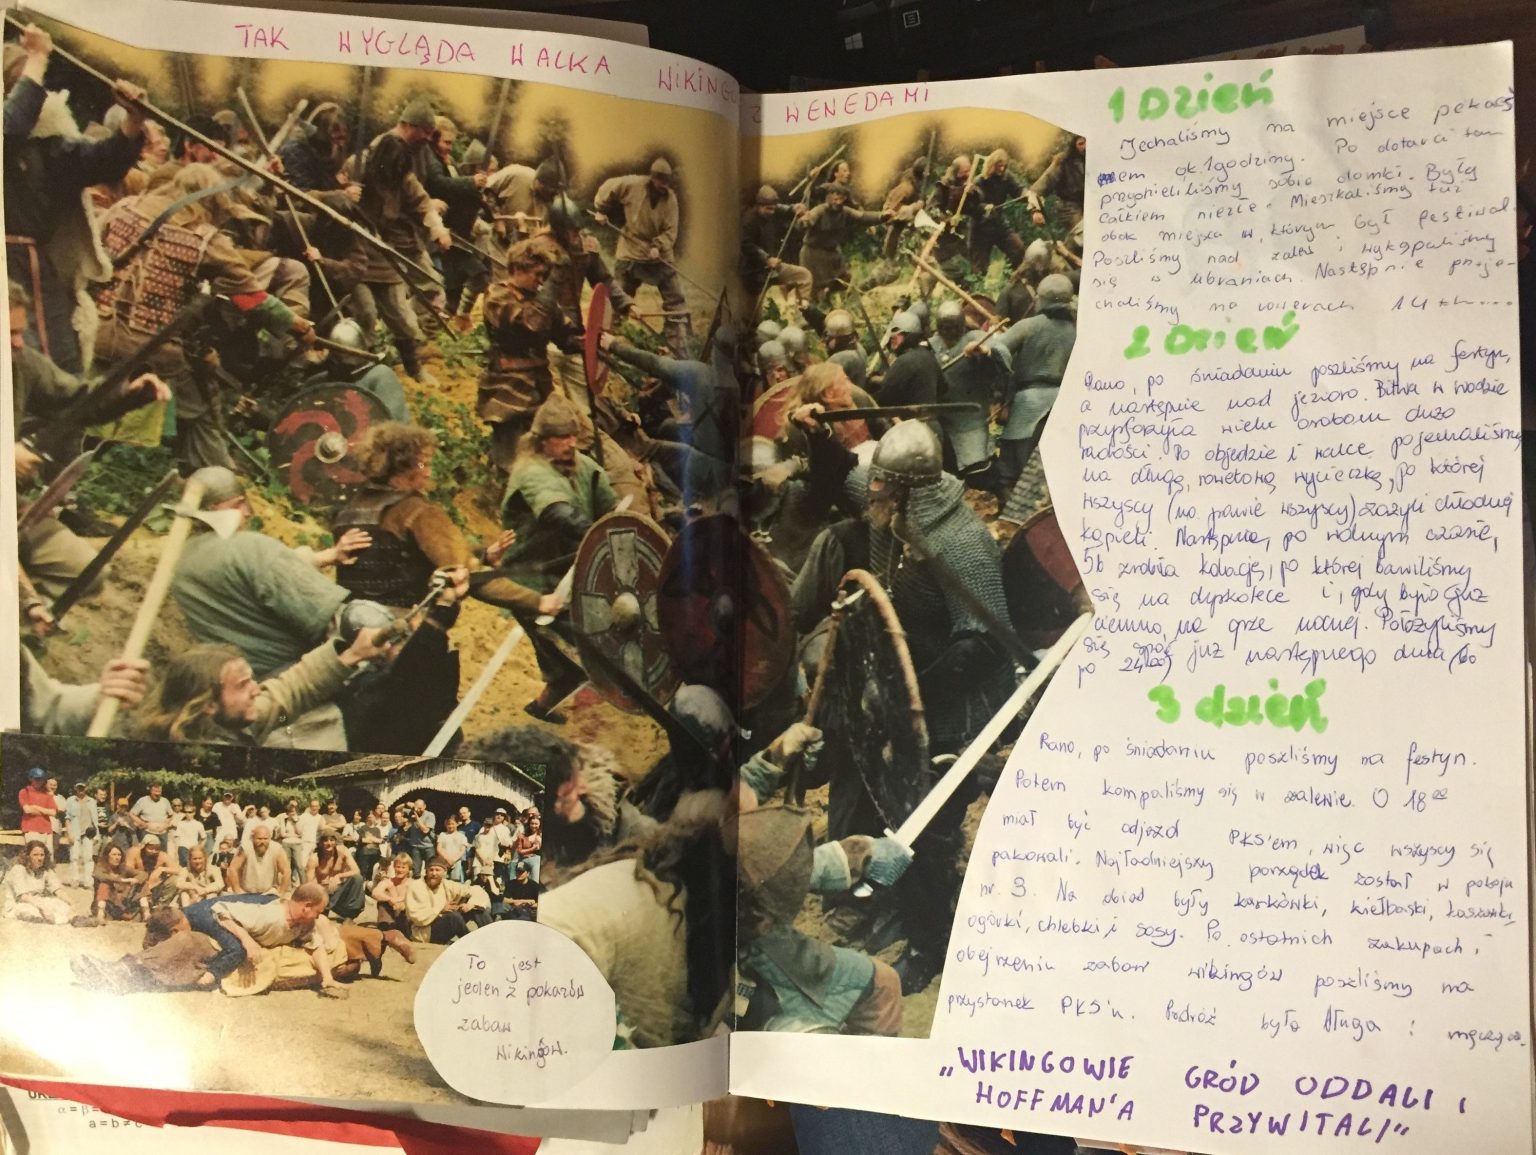 TAK WYGLĄDA WALKA WIKINGÓ
Z WENEDAMI
To jest
jeden z pokazów
zabaw
Wikingów.
1 Dzień
Jechaliśmy na miejsce pekaes
em ok. 1 godziny. Po dotarci tam
przydzieliliśmy sobie domki. Były
całkiem niezłe. Mieszkaliśmy tuż
obok miejsca w którym był festiwal.
Poszliśmy nad zalew i wykąpaliśmy
się w ubraniach. Następnie poje-
chaliśmy na rowerach 14
2 Dzień
Rano, po śniadaniu poszliśmy na festyn,
a następnie nad jezioro. Bitwa w wodzie
wielu osobom dużo
radości. Po objedzie i walce pojechaliśmy
na długą, rowerową wycieczkę, po której
wszyscy (no prawie wszyscy) zażyli chłodnej
kąpieli. Następnie, po wolnym czasie,
5b zrobiła kolację, po której bawiliśmy
się na dyskotece i, gdy było już
ciemno, na grze nocnej. Położyliśmy
się spać już następnego dnia (bo
po 24⁰⁰)
3 dzień
Rano, po śniadaniu poszliśmy na festyn.
Potem kompaliśmy się w zalewie. O 18⁰⁰
miał być odjazd PKS'em, więc wszyscy się
pakowali. Najładniejszy porządek został w pokoju
nr. 3. Na obiad były karkówki, kiełbaski, kaszanki,
ogórki, chlebki i sosy. Po ostatnich zakupach i
obejrzeniu zabaw wikingów poszliśmy na
przystanek PKS'u. Podróż była długa i
„WIKINGOWIE GRÓD ODDALI I
HOFFMAN'A PRZYWITALI"
α = β =
a = b ≠ c